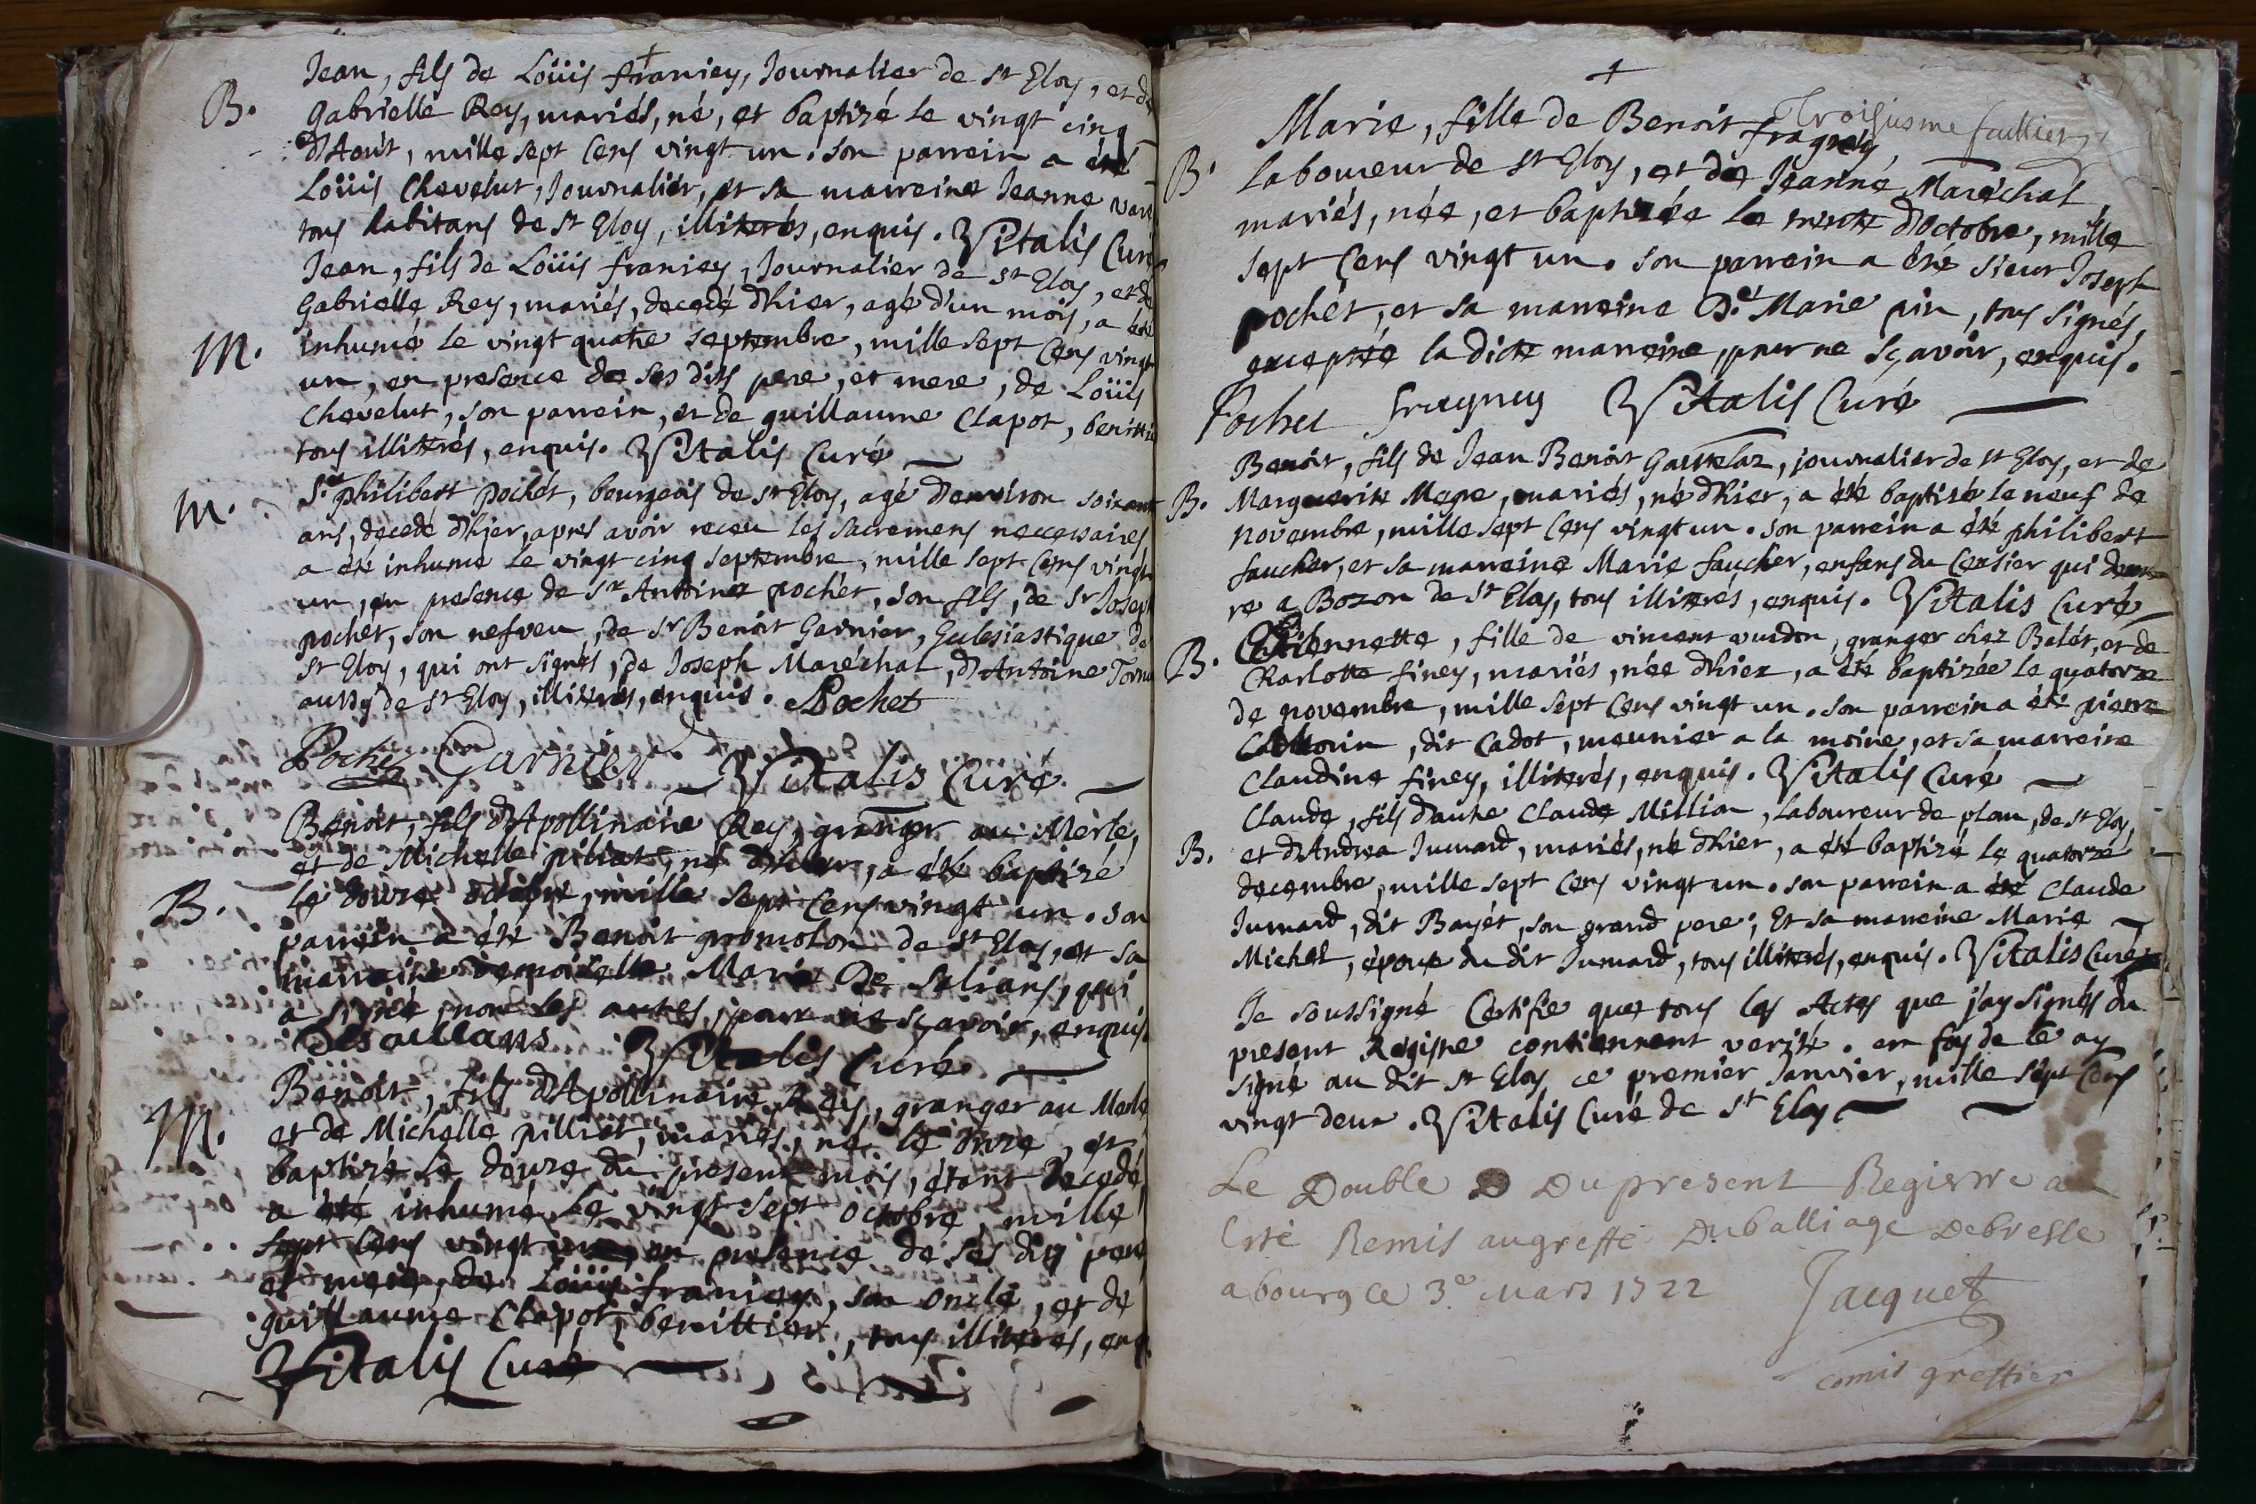 Jean, fils de Loüis franiey, Journalier de st Eloy, et de
B. Gabrielle Rey, mariés, né, et baptizé le vingt cinq
d'Août, mille sept cens vingt un. son parrein a été
Loüis Chevelut, Journalier, et sa marreine Jeanne
tous habitans de st Eloy, illiterés, enquis. Vitalis Curé
Jean, fils de Loüis franiey, Journalier de st Eloy, et de
Gabrielle Rey, mariés, decedé d'hier, agé d'un mois, a été
M. inhumé le vingt quatre septembre, mille sept cens vingt
un, en presence de ses dits pere, et mere, de Loüis
Chevelut, son parrein, et de guillaume Clapot, benittier
tous illiterés, enquis. Vitalis Curé
M. Sr philibert pochét, bourgeois de st Eloy, agé d'environ soixante
ans, decedé d'hier, apres avoir receu les sacremens neccessaires
a été inhumé le vingt cinq septembre, mille sept cens vingt
un, en presence de sr Antoine pochét, son fils, de sr Joseph
pochét, son nefveu, de sr Benoit Garnier, Eclesiastique de
st Eloy, qui ont signés, de Joseph Maréchal, d'Antoine
aussy de st Eloy, illiterés, enquis. Pochet
Pochet Garnier Vitalis Curé
Benoit, fils d'Apollinaire Rey, granger au Merle,
et de Michelle pilliat, né d'hier, a été baptizé
B. le douze octobre, mille sept cens vingt un. son
parrein a été Benoit gromolon de st Eloy, et sa
marreine demoiselle Marie De salians, qui
a signée, non les autres, pour ne sçavoir, enquis
Vitalis Curé
Benoit, fils d'Apollinaire Rey, granger au Merle
M. et de Michelle pilliat, mariés, né le onze, et
baptizé le douze du present mois, étant decedé
a été inhumé le vingt sept octobre, mille
sept cens vingt un, en presence de ses dits pere
et mere, de Loüis franiey, son oncle, et de
guillaume Clapot, benittier, tous illiterés, enq.
Vitalis Curé
Troisiesme feuillet
Marie, fille de Benoit fragney,
B. laboureur de st Eloy, et de Jeanne Maréchal,
mariés, née, et baptizée le trente d'Octobre, mille
sept cens vingt un. son parrein a été sieur Joseph
pochét, et sa marreine De Marie pin, tous signés,
exceptée la dicte marreine, pour ne sçavoir, enquis.
Pochet fragney Vitalis Curé
Benoit, fils de Jean Benoit Gauvelaz, journalier de st Eloy, et de
B. Marguerite Mepe, mariés, né d'hier, a été baptizé le neuf de
novembre, mille sept cens vingt un. son parrein a été philibert
faucher, et sa marreine Marie faucher, enfans du Censier qui demeu
re a Bozon de st Eloy, tous illiterés, enquis. Vitalis Curé
Etiennette, fille de vincent vurdon, granger chez Balét, et de
B. Charlotte finey, mariés, née d'hier, a été baptizée le quatorze
de novembre, mille sept cens vingt un. son parrein a été pierre
dit Cadot, meunier a la moine, et sa marreine
Claudine finey, illiterés, enquis. Vitalis Curé
Claude, fils d'autre Claude Million, Laboureur de plan, de st Eloy,
B. et d'Andrea Jumard, mariés, né d'hier, a été baptizé le quatorze
decembre, mille sept cens vingt un. son parrein a été Claude
Jumard, dit Bayét, son grand pere, Et sa marreine Marie
Michel, épouse du dit Jumard, tous illiterés, enquis. Vitalis Curé
Je soussigné Certifie que tous les Actes que j'ay signés du
present Registre contiennent verité. en foy de ce ay
signé au dit st Eloy ce premier Janvier, mille sept cens
vingt deux. Vitalis Curé de st Eloy
Le Double Du present Registre a
Esté Remis au greffe Du balliage De bresse
a bourg ce 3e Mars 1722 Jacquet
comis greffier